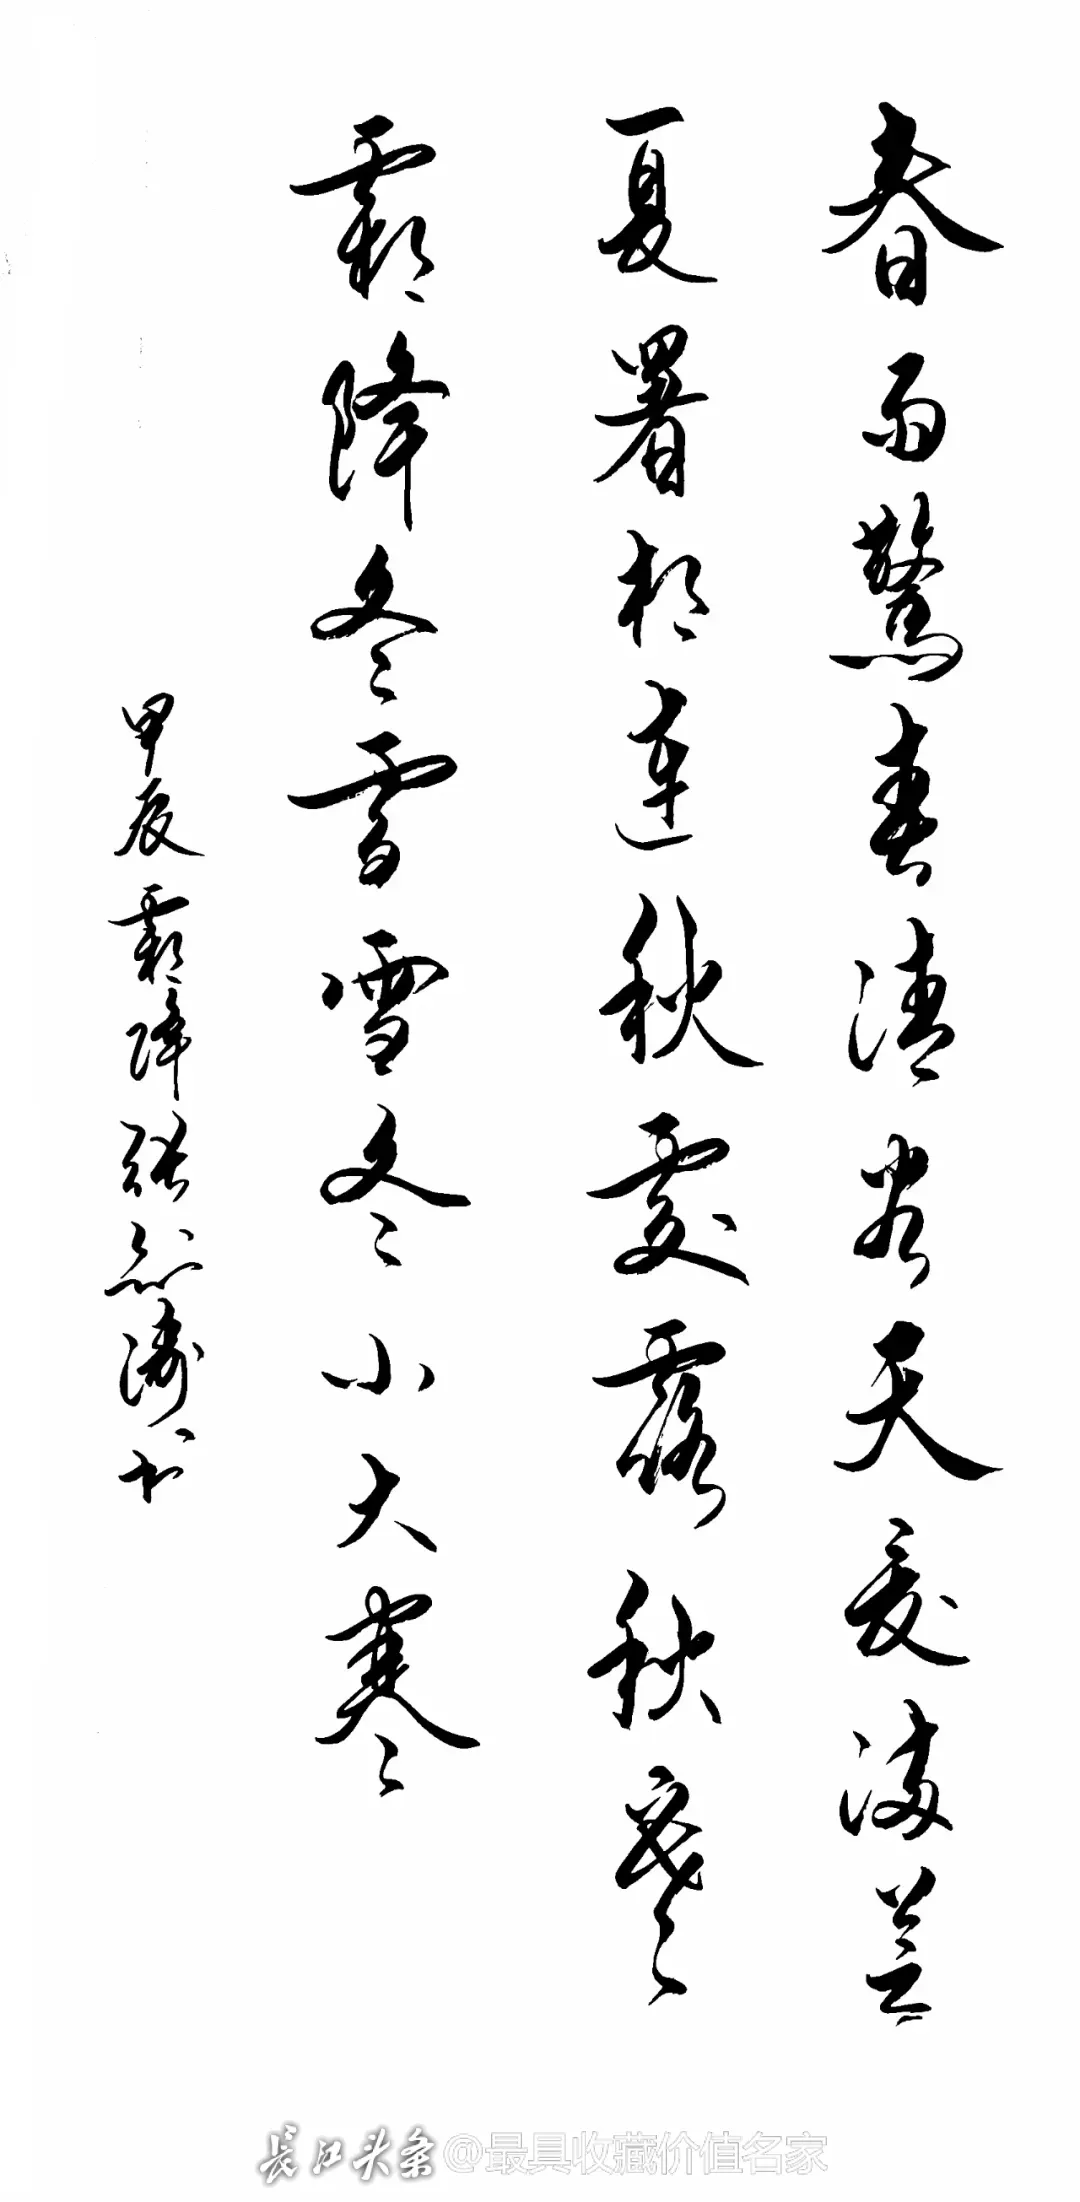 春雨驚春清谷天夏满芒
夏署相連秋處露秋寒
霜降冬雪雪冬小大寒
甲辰霜降張濤书
長江头条@最具收藏价值名家